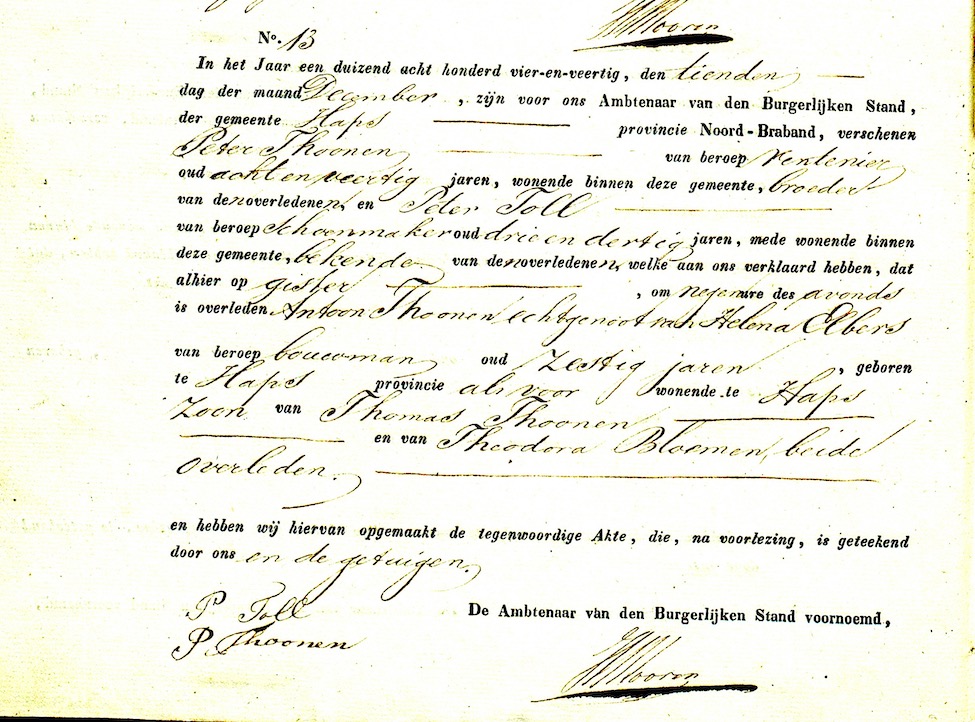 No. 13
In het Jaar een duizend acht honderd vier-en-veertig, den tienden
dag der maand December, zijn voor ons Ambtenaar van den Burgerlijken Stand,
der gemeente Haps provincie Noord-Braband, verschenen
Peter Thoonen van beroep rentenier
oud acht en veertig jaren, wonende binnen deze gemeente, broeder
van den overledenen, en Peter Toll
van beroep schoenmaker oud drie en dertig jaren, mede wonende binnen
deze gemeente, bekende van den overledenen, welke aan ons verklaard hebben, dat
alhier op gister, om negen ure des avonds
is overleden Antoon Thoonen echtgenoot van Helena Elbers
van beroep bouwman oud zestig jaren, geboren
te Haps provincie als voor wonende te Haps
zoon van Thomas Thoonen
en van Theodora Bloemen, beide
overleden.
en hebben wij hiervan opgemaakt de tegenwoordige Akte, die, na voorlezing, is geteekend
door ons en de getuigen.
P Toll
De Ambtenaar van den Burgerlijken Stand voornoemd,
P. Thoonen